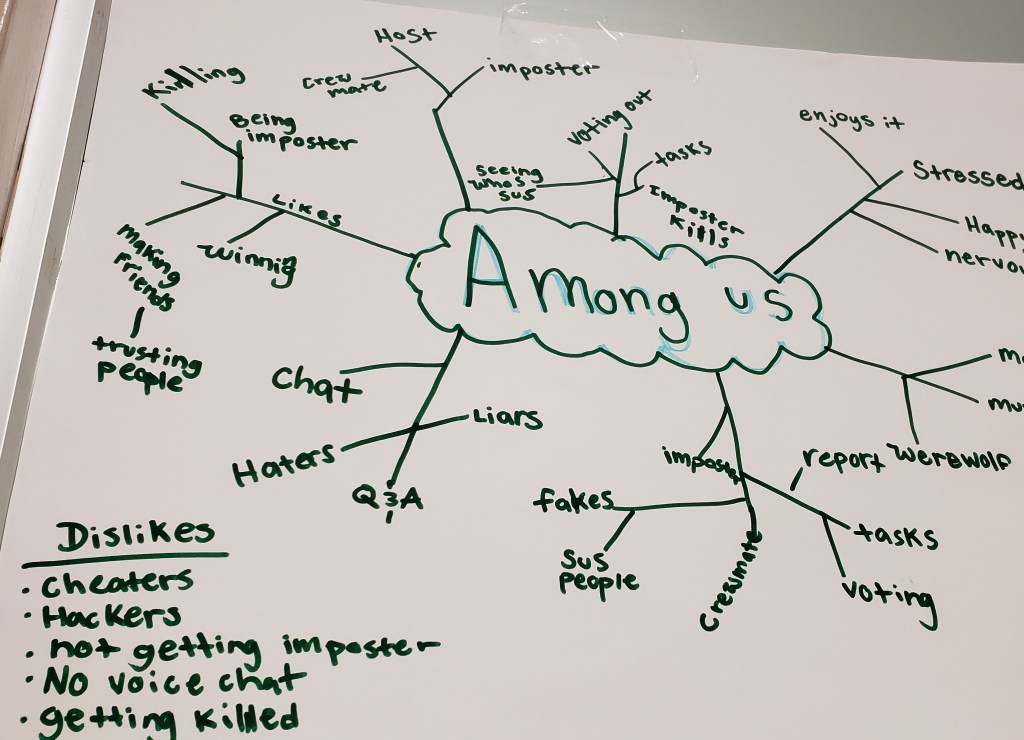 Host
Crew
mate
imposter
Killing
Being
imposter
Likes
making
friends
trusting
people
winnig
voting out
seeing
who's
sus
tasks
Imposter
kills
enjoys it
Stressed
Happy
Among us
Chat
Liars
Haters
Q&A
imposter
report
werewolf
fakes
sus
people
Crewmate
tasks
voting
Dislikes
· cheaters
· Hackers
· not getting imposter
· No voice chat
· getting killed